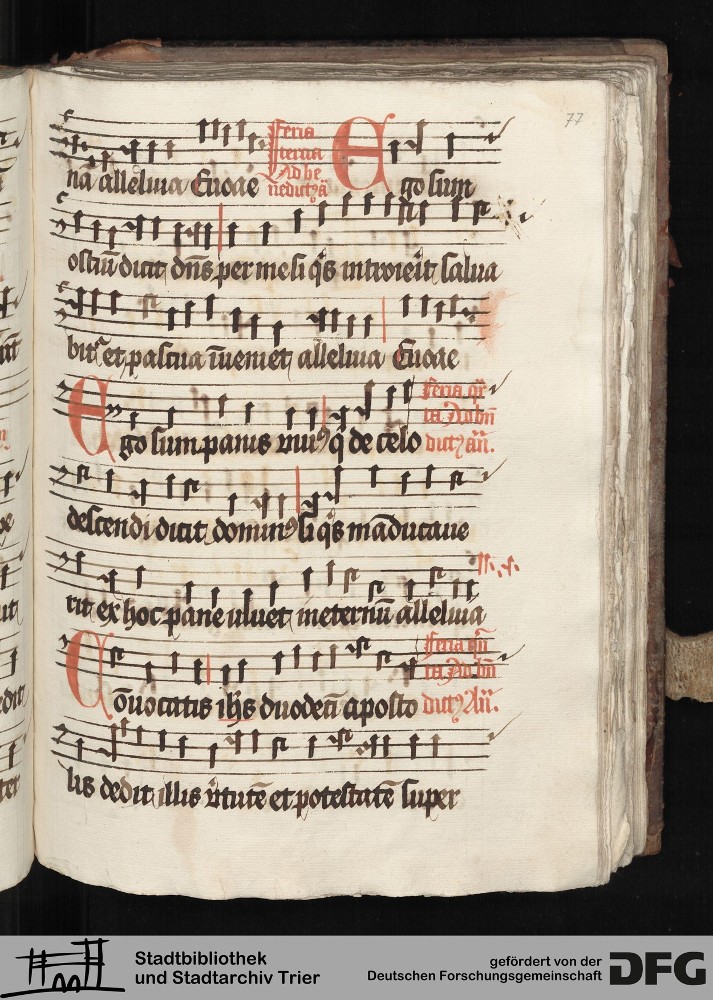 77
na alleluia Euoae feria tercia Ad benedictꝰ a Ego sum
ostiū dicit dn̄s per me si q̄s introierit salua
bit͛ et pascua īueniet alleluia Euoae
Ego sum panis viuꝰ q̄ de celo feria q̄rta Ad bn̄dictꝰ an̄.
descendi dicit dominꝰ si q̄s māducaue
rit ex hoc pane uiuet ineternū alleluia
Cōuocatis ih̄s duodeci aposto feria qn̄ta Ad bn̄dictꝰ An̄.
lis dedit illis v̄tutē et potestatē super
Stadtbibliothek
und Stadtarchiv Trier
gefördert von der
Deutschen Forschungsgemeinschaft
DFG